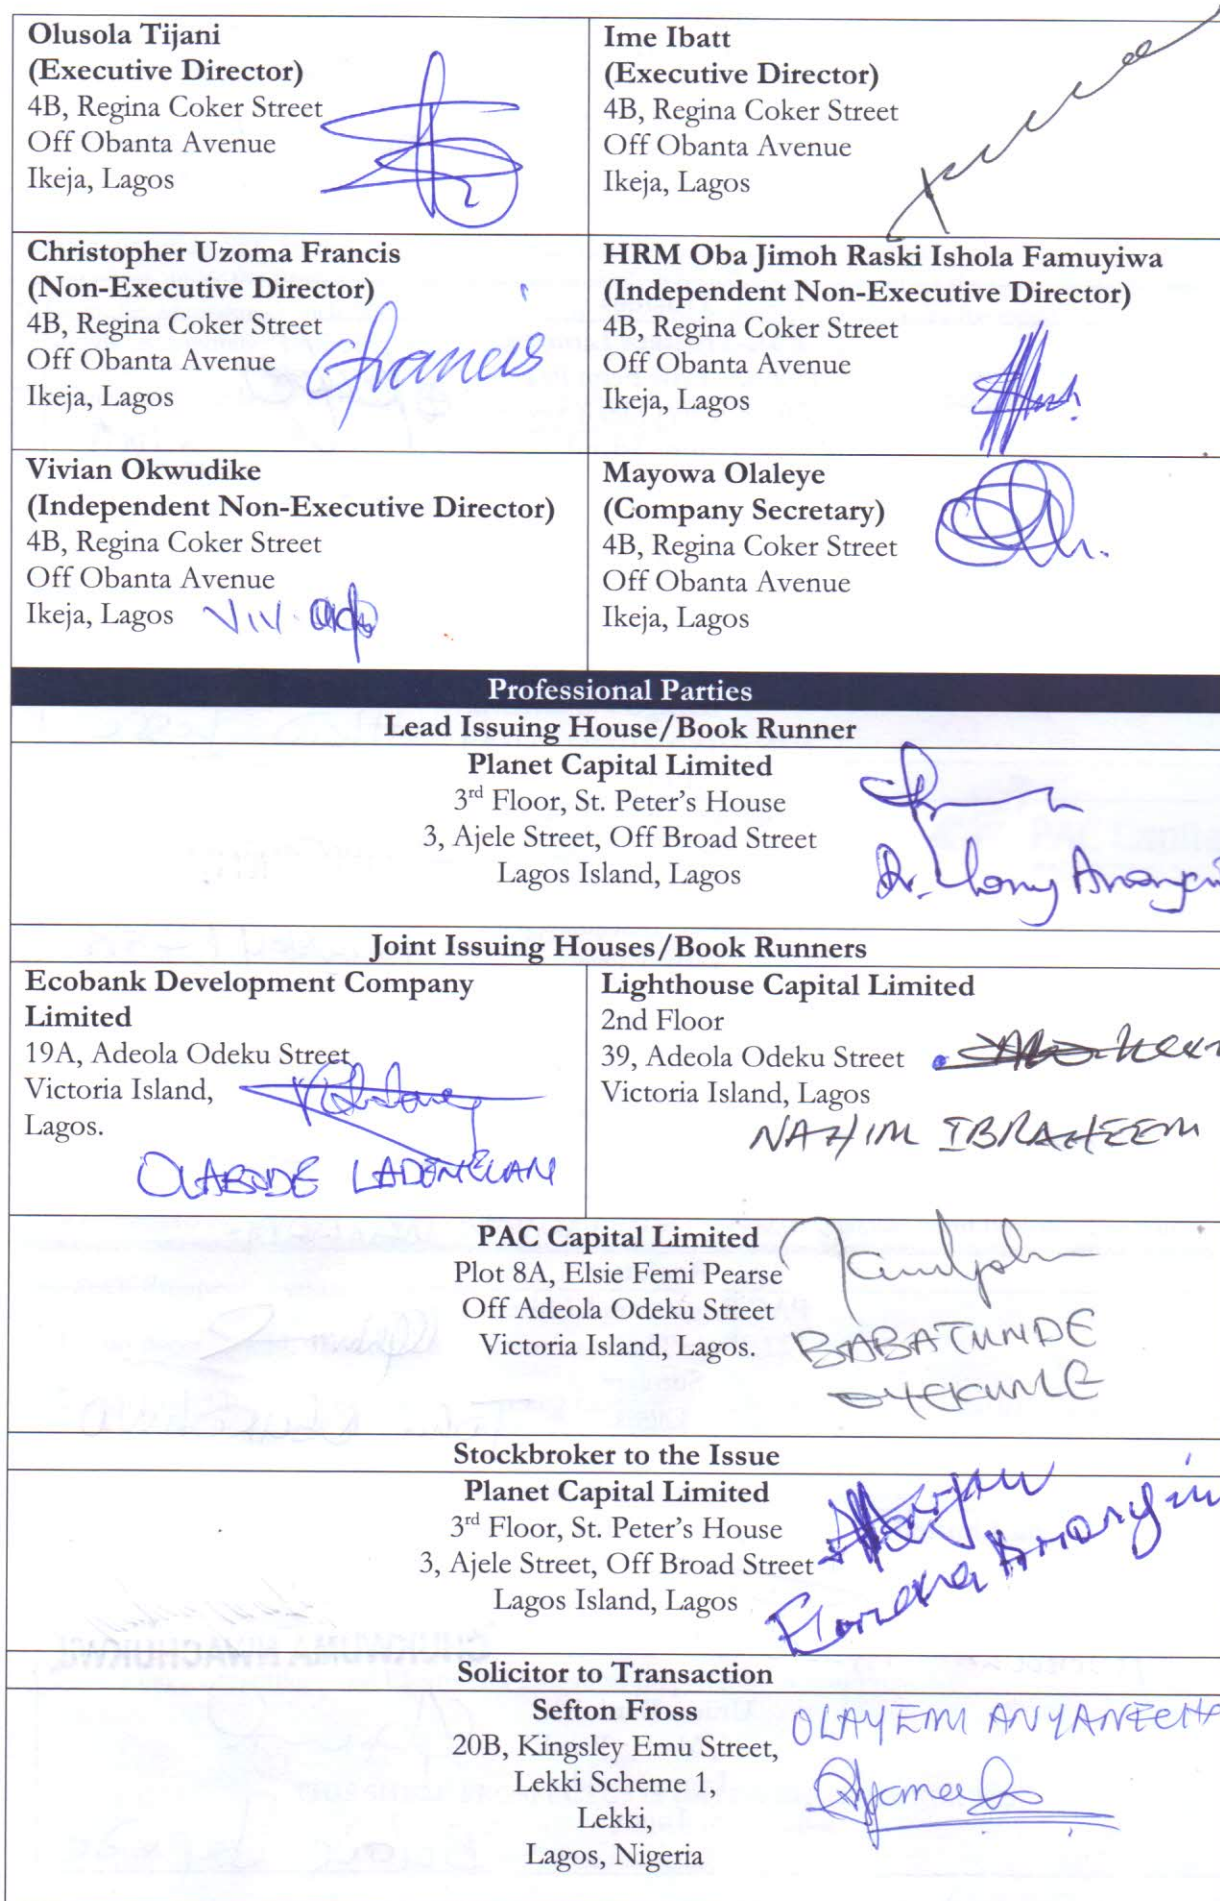 Olusola Tijani
(Executive Director)
4B, Regina Coker Street
Off Obanta Avenue
Ikeja, Lagos
Ime Ibatt
(Executive Director)
4B, Regina Coker Street
Off Obanta Avenue
Ikeja, Lagos
Christopher Uzoma Francis
(Non-Executive Director)
4B, Regina Coker Street
Off Obanta Avenue
Ikeja, Lagos
Francis
HRM Oba Jimoh Raski Ishola Famuyiwa
(Independent Non-Executive Director)
4B, Regina Coker Street
Off Obanta Avenue
Ikeja, Lagos
Vivian Okwudike
(Independent Non-Executive Director)
4B, Regina Coker Street
Off Obanta Avenue
Ikeja, Lagos
Mayowa Olaleye
(Company Secretary)
4B, Regina Coker Street
Off Obanta Avenue
Ikeja, Lagos
Professional Parties
Lead Issuing House/Book Runner
Planet Capital Limited
3rd Floor, St. Peter's House
3, Ajele Street, Off Broad Street
Lagos Island, Lagos
Dr.
Joint Issuing Houses/Book Runners
Ecobank Development Company
Limited
19A, Adeola Odeku Street
Victoria Island,
Lagos.
OLABODE
Lighthouse Capital Limited
2nd Floor
39, Adeola Odeku Street
Victoria Island, Lagos
NAHIM IBRAHEEM
PAC Capital Limited
Plot 8A, Elsie Femi Pearse
Off Adeola Odeku Street
Victoria Island, Lagos.
BABATUNDE
OYEKUNLE
Stockbroker to the Issue
Planet Capital Limited
3rd Floor, St. Peter's House
3, Ajele Street, Off Broad Street
Lagos Island, Lagos
Solicitor to Transaction
Sefton Fross
20B, Kingsley Emu Street,
Lekki Scheme 1,
Lekki,
Lagos, Nigeria
OLAYEMI ANYANECHA